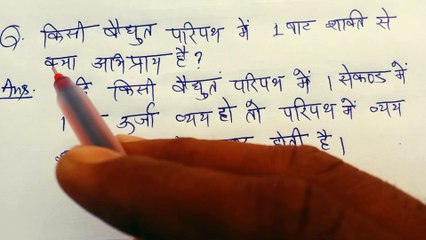 Q. किसी वैद्युत परिपथ में 1 वाट शक्ति से
क्या अभिप्राय है?
Ans. किसी वैद्युत परिपथ में 1 सेकण्ड में
1 ऊर्जा व्यय हो तो परिपथ में व्यय
होती है।